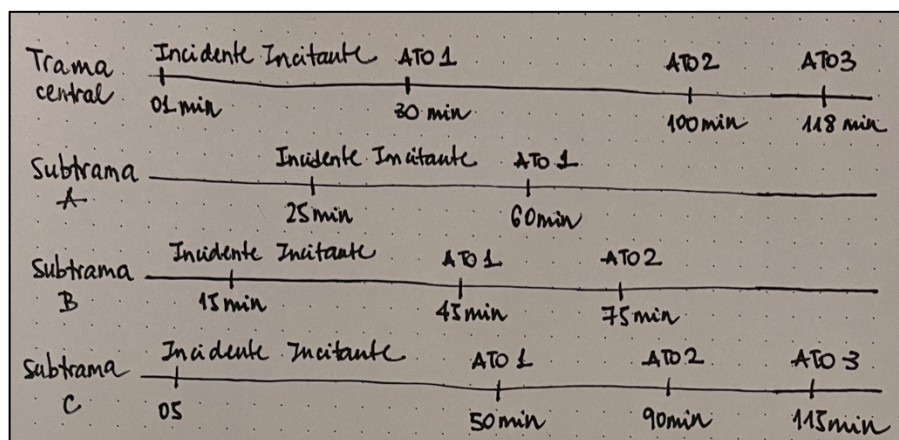 Trama central
Incidente Incitante ATO 1 ATO2 ATO3
01 min 30 min 100 min 118 min
Subtrama A
Incidente Incitante ATO 1
25 min 60 min
Subtrama B
Incidente Incitante ATO 1 ATO2
15 min 45 min 75 min
Subtrama C
Incidente Incitante ATO 1 ATO2 ATO 3
05 50 min 90 min 115 min